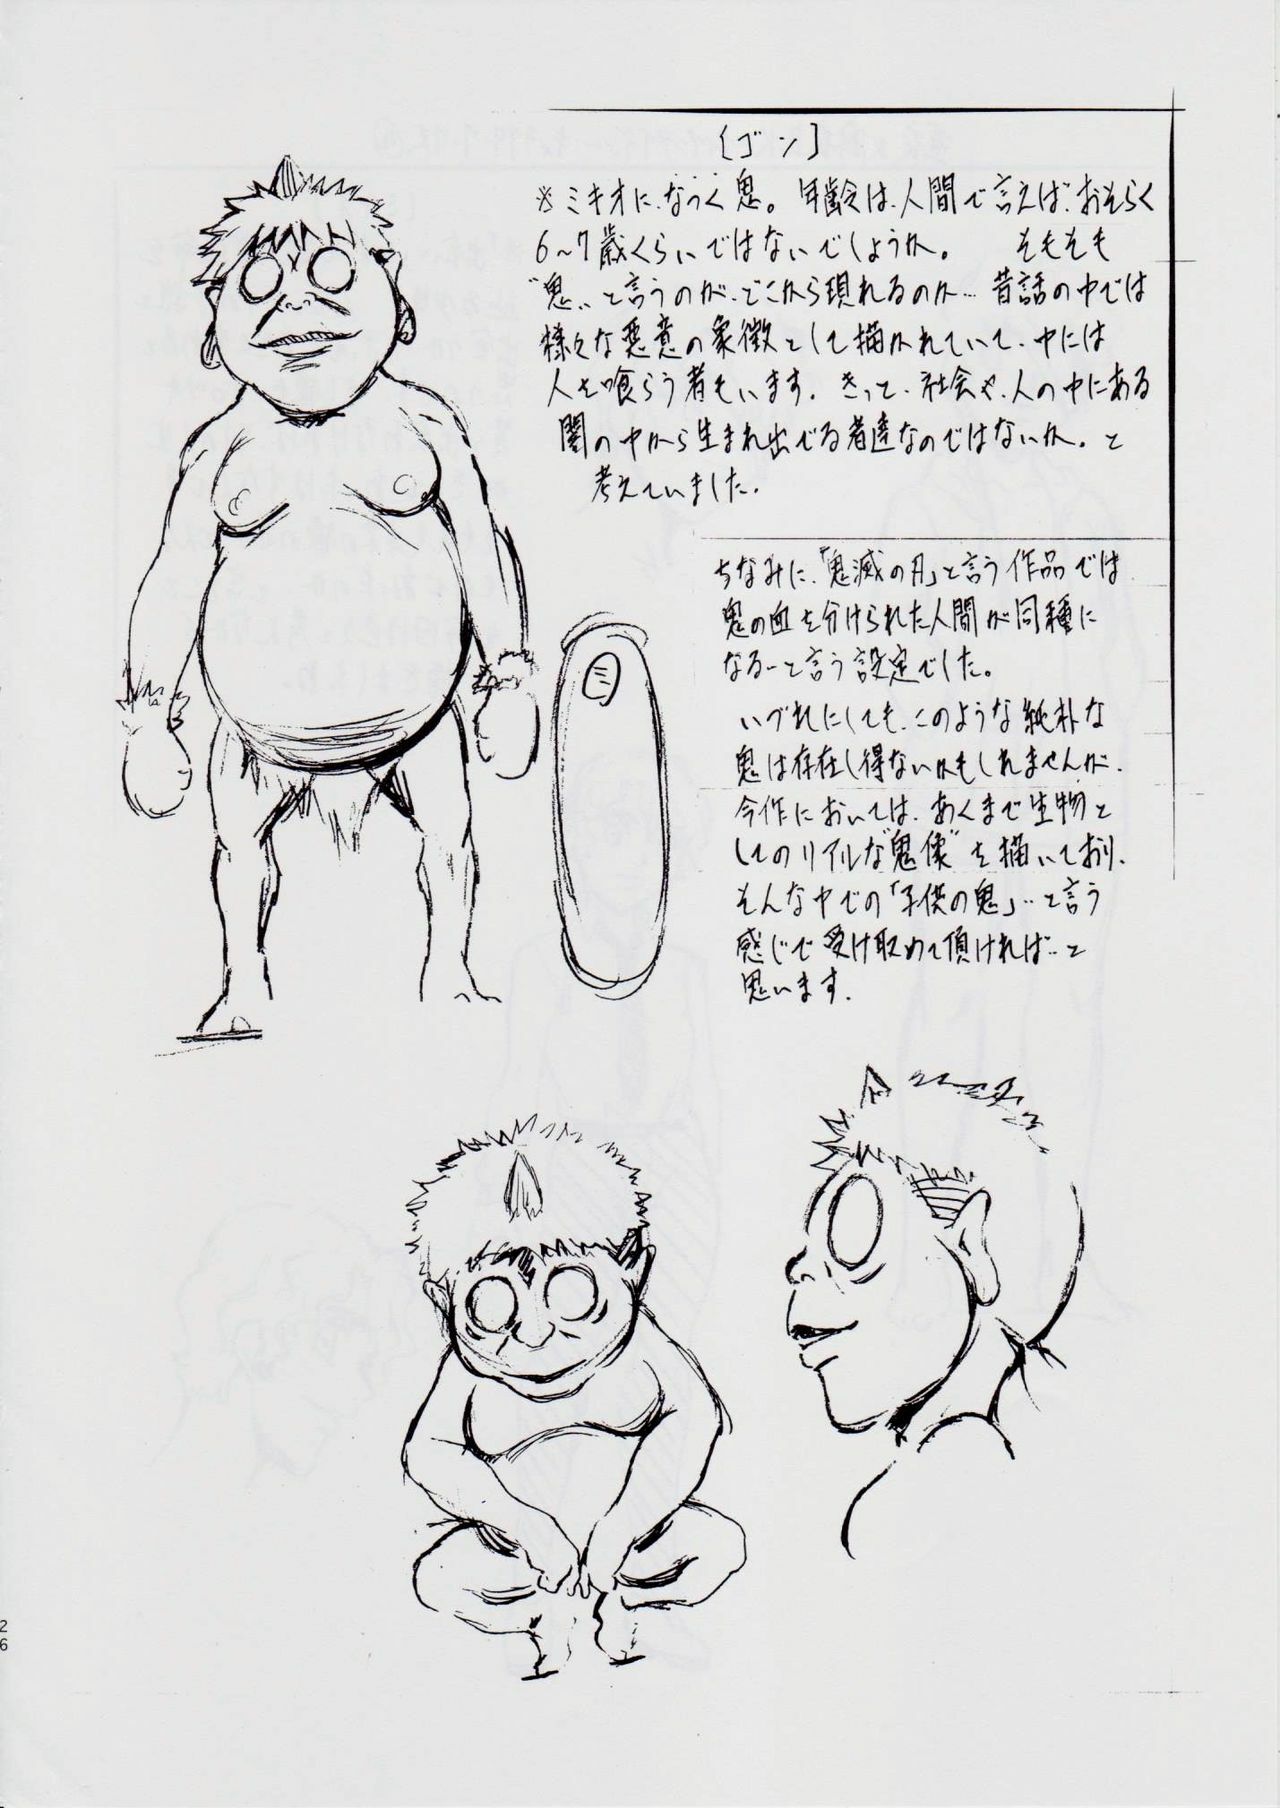 ［ゴン］
※ミキオに、なつく鬼。年齢は、人間で言えば、おそらく
6～7歳くらいではないでしょうか。 そもそも
"鬼"と言うのが、どこから現れるのか…昔話の中では
様々な悪意の象徴として描かれていて、中には
人を喰らう者もいます。きっと、社会や、人の中にある
闇の中から生まれ出でる者達なのではないか。と
考えていました。
ちなみに、「鬼滅の刃」と言う作品では
鬼の血を分けられた人間が同種に
なる…と言う設定でした。
いづれにしても、このような純朴な
鬼は存在し得ないかもしれませんが、
今作においては、あくまで生物と
してのリアルな"鬼像"を描いており、
そんな中での「子供の鬼」…と言う
感じで受け取めて頂ければ…と
思います。
26